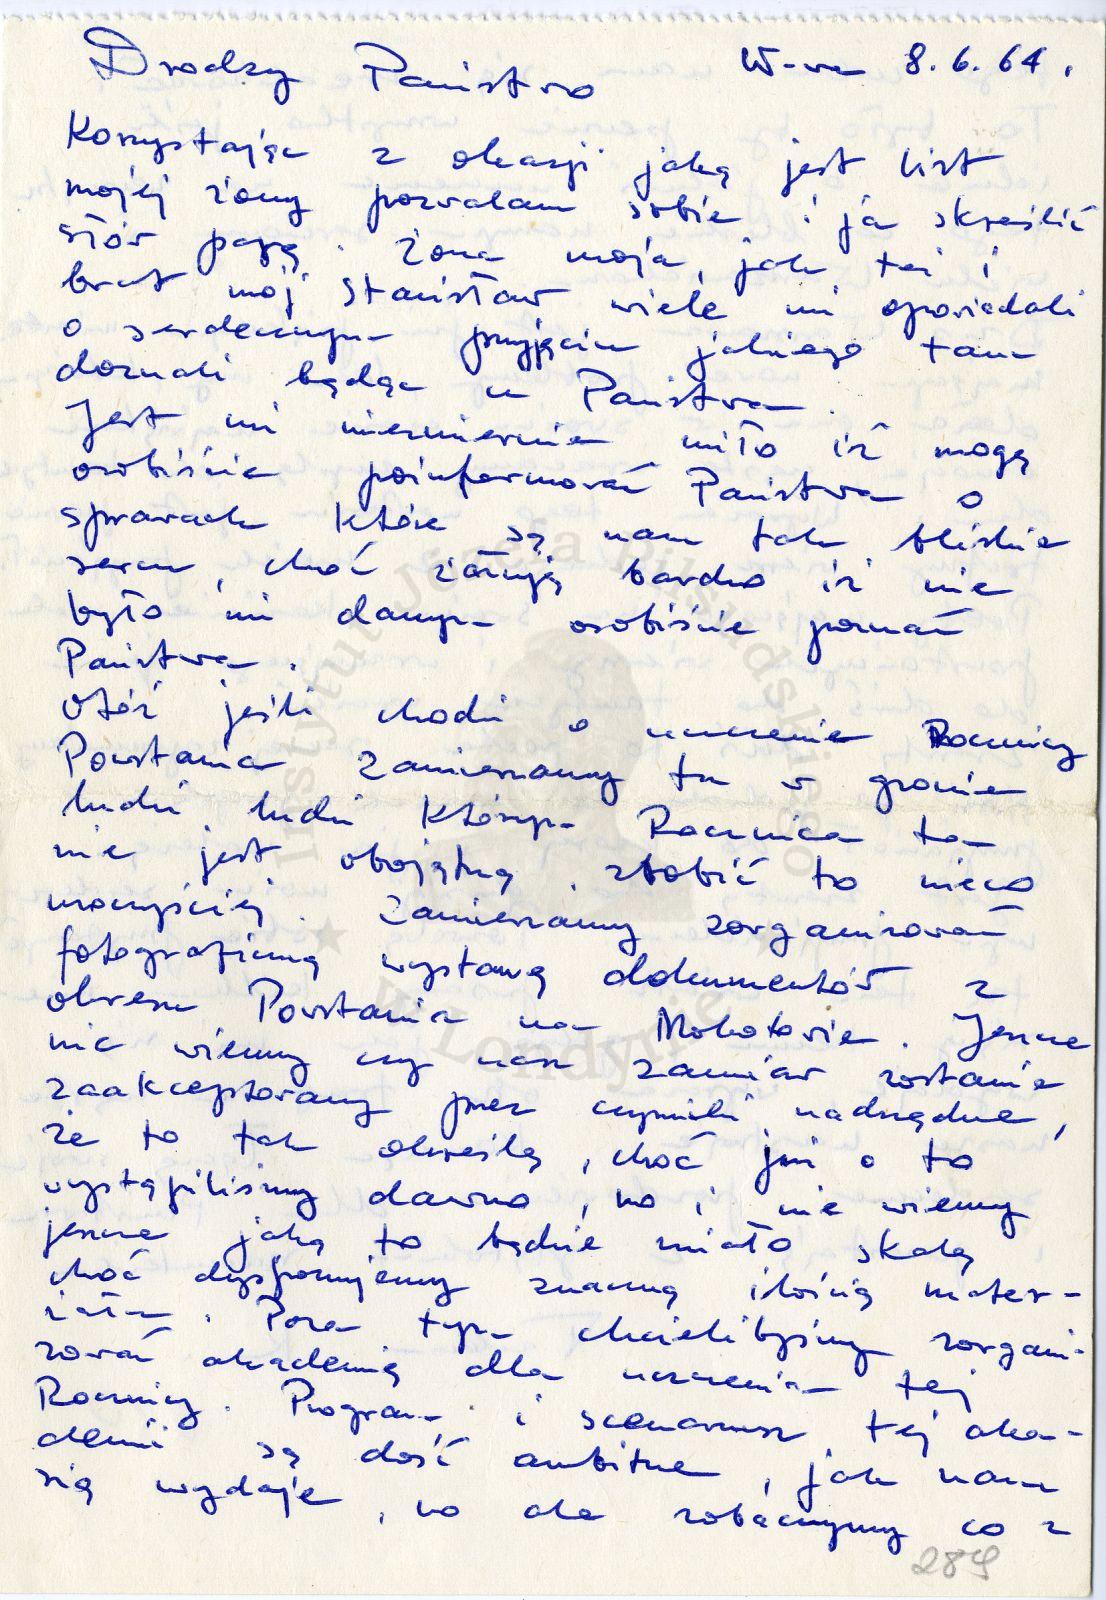 Drodzy Państwo W-wa 8.6.64.
Korzystając z okazji jaką jest list
mojej żony pozwalam sobie i ja skreślić
słów parę. Żona moja, jak też i
brat mój Stanisław wiele mi opowiadali
o serdecznym przyjęciu jakiego tam
doznali będąc u Państwa.
Jest mi niezmiernie miło iż mogę
osobiście poinformować Państwa o
sprawach które są nam tak bliskie
sercu, choć żałuję bardzo iż nie
było mi danym osobiście poznać
Państwa.
Otóż jeśli chodzi o uczczenie Rocznicy
Powstania zamierzamy tu w gronie
ludzi, ludzi którym Rocznica ta
nie jest obojętną zrobić to nieco
uroczyściej. Zamierzamy zorganizować
fotograficzną wystawę dokumentów z
okresu Powstania na Mokotowie. Jeszcze
nie wiemy czy nasz zamiar zostanie
zaakceptowany przez czynniki nadrzędne,
że to tak określę, choć już o to
wystąpiliśmy dawno, no i nie wiemy
jeszcze jaką to będzie miało skalę
choć dysponujemy znaczną ilością mater-
iału. Poza tym chcielibyśmy zorgani-
zować akademię dla uczczenia tej
Rocznicy. Program i scenariusz tej aka-
demii są dość ambitne, jak nam
się wydaje, no ale zobaczymy co z
289
Instytut Józefa Piłsudskiego
w Londynie